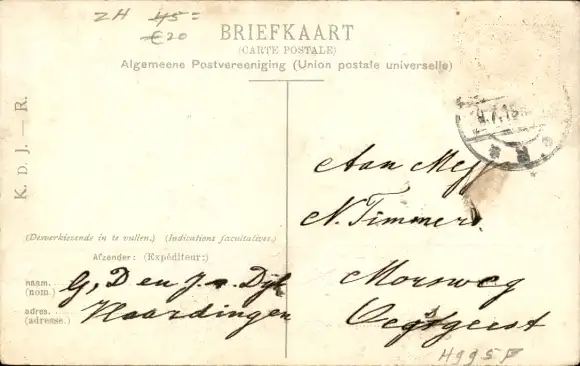 ZH 45=
€20
BRIEFKAART
(CARTE POSTALE)
Algemeene Postvereeniging (Union postale universelle)
K. D. J. — R.
Aan Mej
N. Timmers
(Desverkiezende in te vullen.) (Indications facultatives.)
Afzender: (Expéditeur:)
naam. (nom.) G, D en J. v. Dijk
Morsweg
adres. (adresse.) Vlaardingen
Oegstgeest
H995F